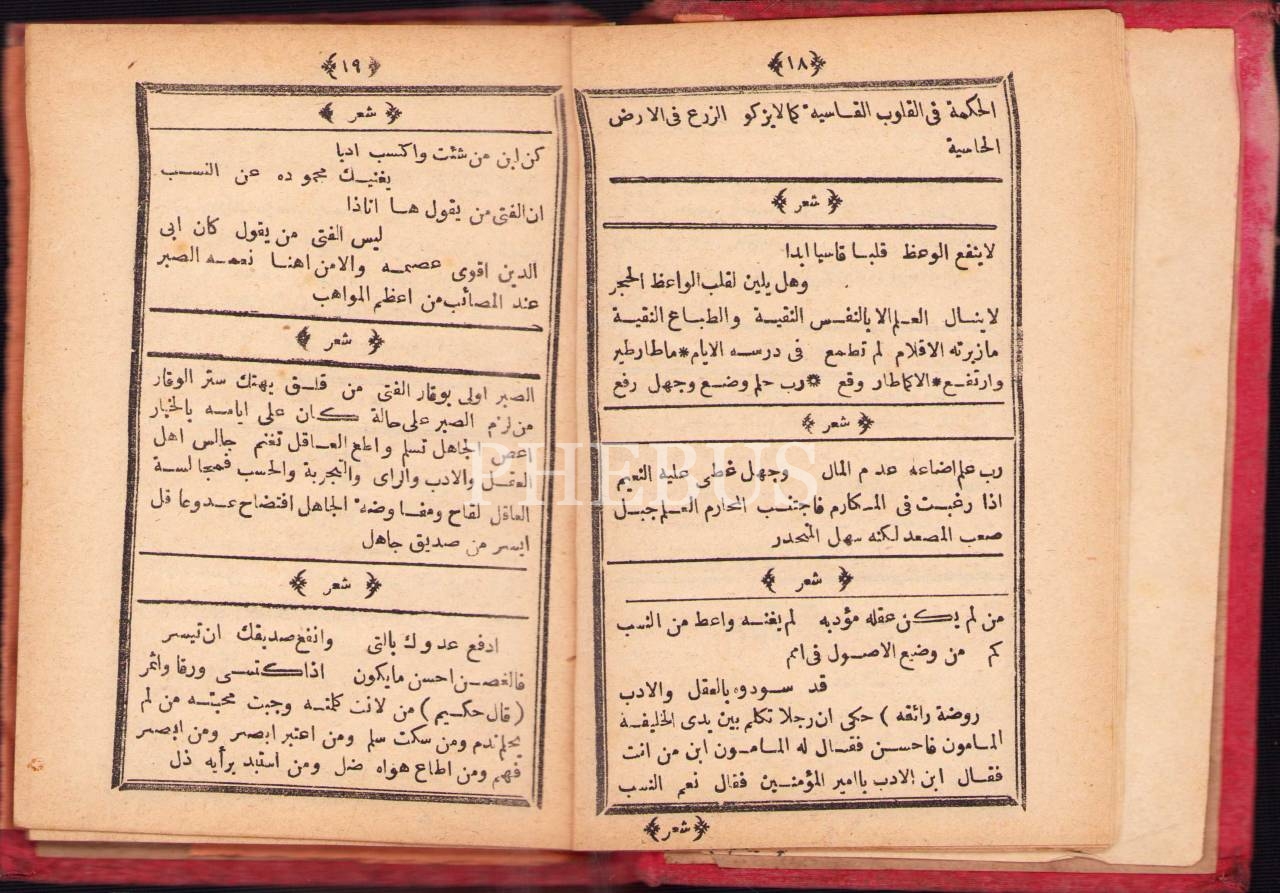 ﴿١٨﴾
الحكمة فى القلوب القاسية كما لا يزكو الزرع فى الارض
الحاسية
﴿ شعر ﴾
لا ينفع الوعظ قلبا قاسيا ابدا
وهل يلين لقلب الواعظ الحجر
لا ينال العلم الا بالنفس النقية والطباع النقية
مازبرته الاقلام لم تطمع فى درسه الايام * ماطار طير
وارتفع * الا كاطار وقع * رب حلم وضع وجهل رفع
﴿ شعر ﴾
رب علم اضاعه عدم المال وجهل غطى عليه النعيم
اذا رغبت فى المكارم فاجتنب المحارم العلم جبل
صعب المصعد لكنه سهل المنحدر
﴿ شعر ﴾
من لم يكن عقله مؤدبه لم يغنه واعط من النسب
كم من وضيع الاصول فى امم
قد سودوه بالعقل والادب
روضة رائقه ) حكى ان رجلا تكلم بين يدى الخليفة
المامون فاحسن فقال له المامون ابن من انت
فقال ابن الادب ياامير المؤمنين فقال نعم النسب
﴿ شعر ﴾
﴿١٩﴾
﴿ شعر ﴾
كن ابن من شئت واكتسب ادبا
يغنيك محموده عن النسب
ان الفتى من يقول ها اناذا
ليس الفتى من يقول كان ابى
الدين اقوى عصمه والامن اهنا نعمه الصبر
عند المصائب من اعظم المواهب
﴿ شعر ﴾
الصبر اولى بوقار الفتى من قلق يهتك ستر الوقار
من لزم الصبر على حالة كان على ايامه بالخيار
اعص الجاهل تسلم واطع العاقل تغنم جالس اهل
العقل والادب والراى والتجربة والحسب فمجالسة
العاقل لقاح ومفاوضة الجاهل افتضاح عدو عاقل
ايسر من صديق جاهل
﴿ شعر ﴾
ادفع عدوك بالتى وانفع صديقك ان تيسر
فالغصن احسن مايكون اذا اكتسى ورقا واثمر
( قال حكيم ) من لانت كلمته وجبت محبته من لم
يحلم ندم ومن سكت سلم ومن اعتبر ابصر ومن ابصر
فهم ومن اطاع هواه ضل ومن استبد برأيه ذل
PHEBUS